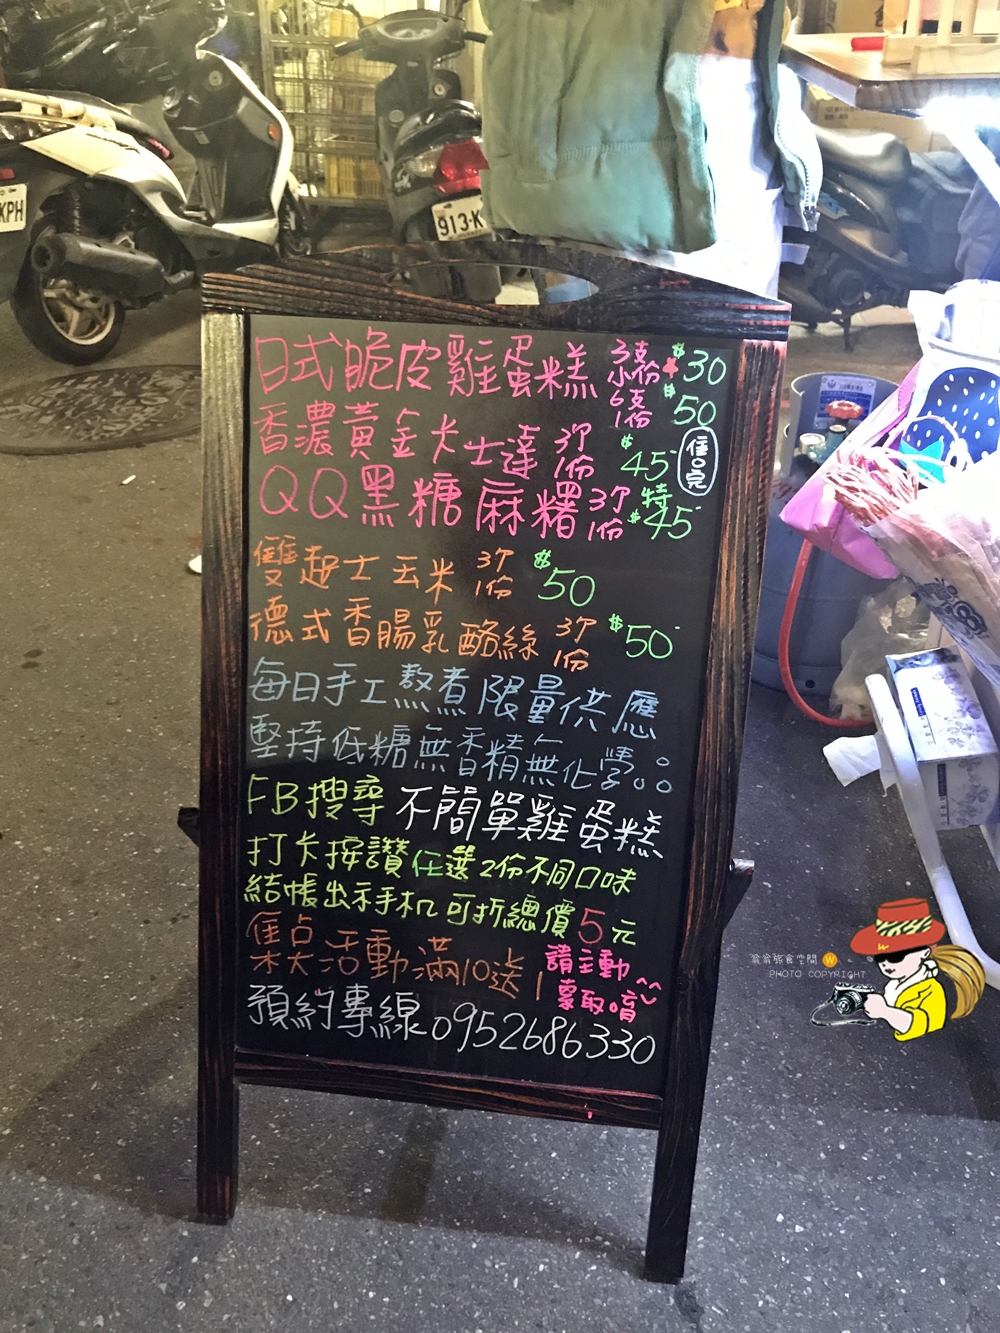 KPH
913-K
日式脆皮雞蛋糕 3支小份 $30
6支1份 $50
香濃黃金卡士達 3個1份 $45 售完
QQ黑糖麻糬 3個1份 特$45
雙起士玉米 3個1份 $50
德式香腸乳酪絲 3個1份 $50
每日手工熬煮限量供應
堅持低糖無香精無化學。。。
FB搜尋 不簡單雞蛋糕
打卡按讚任選2份不同口味
結帳出示手机可折總價5元
集点活動滿10送1 請主動索取唷^^
預約專線0952686330
PHOTO COPYRIGHT